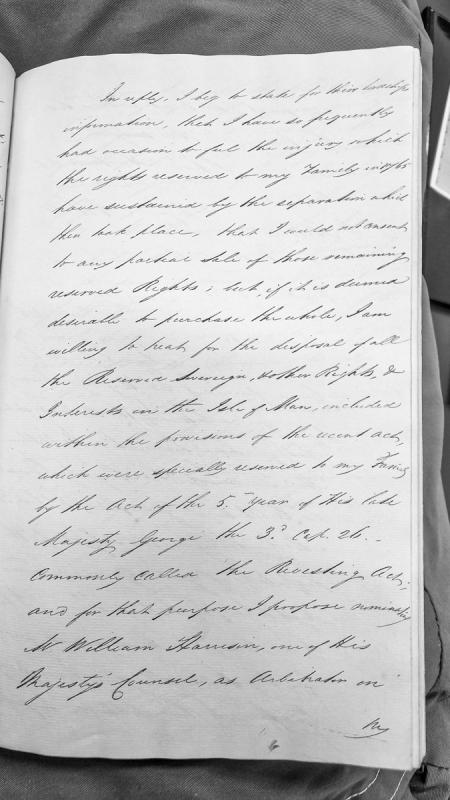 In reply, I beg to state for their Lordships
information, that I have so frequently
had occasion to feel the injury which
the rights reserved to my Family in 1765
have sustained by the separation which
then took place, that I would not consent
to any partial Sale of those remaining
reserved Rights; but, if it is deemed
desirable to purchase the whole, I am
willing to treat for the disposal of all
the Reserved Sovereign, & other Rights, &
Interests in the Isle of Man, included
within the provisions of the recent act,
which were specially reserved to my Family
by the Act of the 5. Year of His late
Majesty George the 3.d Cap. 26. -
Commonly called the Revesting Act;
and for that purpose I propose nominating
Mr William Harrison, one of His
Majesty's Counsel, as Arbitrator on
my